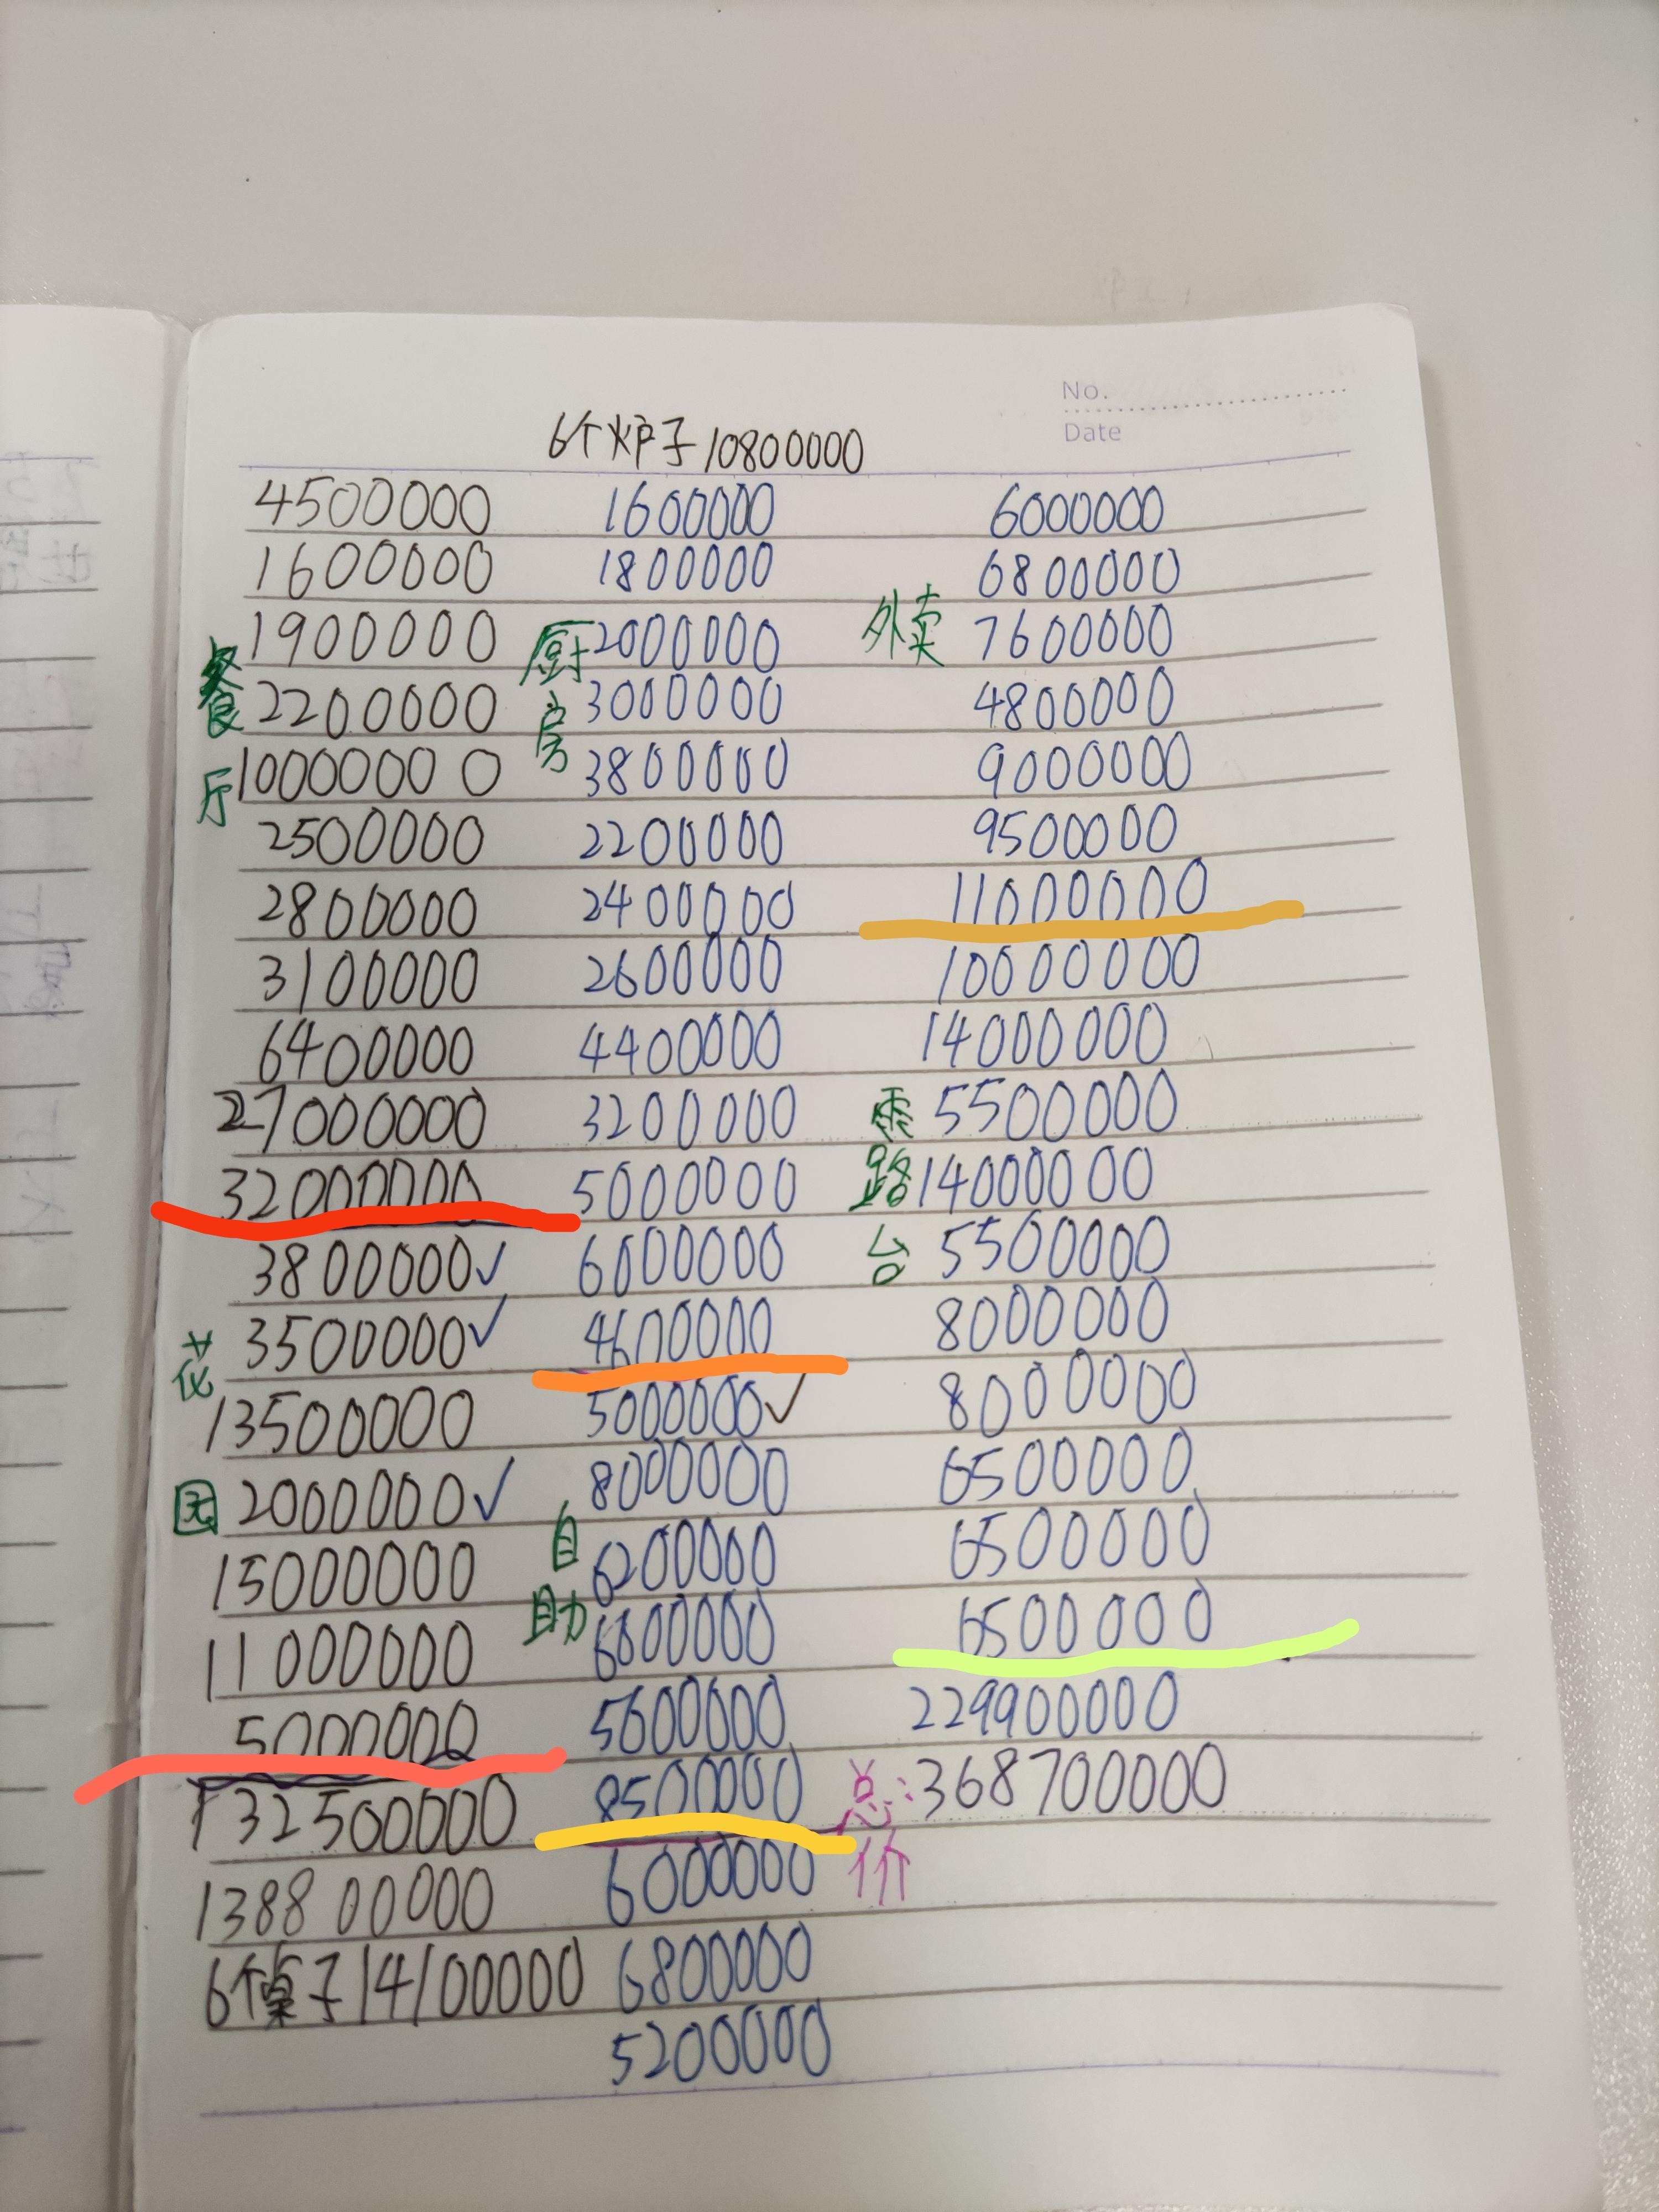 No.
Date
6个炉子10800000
4500000
1600000
1900000
2200000
10000000
2500000
2800000
3100000
6400000
27000000
32000000
餐厅
3800000✓
3500000✓
13500000
2000000✓
15000000
11000000
5000000
花园
132500000
138800000
6个桌子14100000
1600000
1800000
2000000
3000000
3800000
2200000
2400000
2600000
4400000
3200000
5000000
6000000
4600000
厨房
5000000✓
8000000
6200000
6800000
5600000
8500000
自助
6000000
6800000
5200000
6000000
6800000
7600000
4800000
9000000
9500000
11000000
外卖
10000000
14000000
5500000
14000000
5500000
8000000
8000000
6500000
6500000
6500000
露台
229900000
总价:368700000